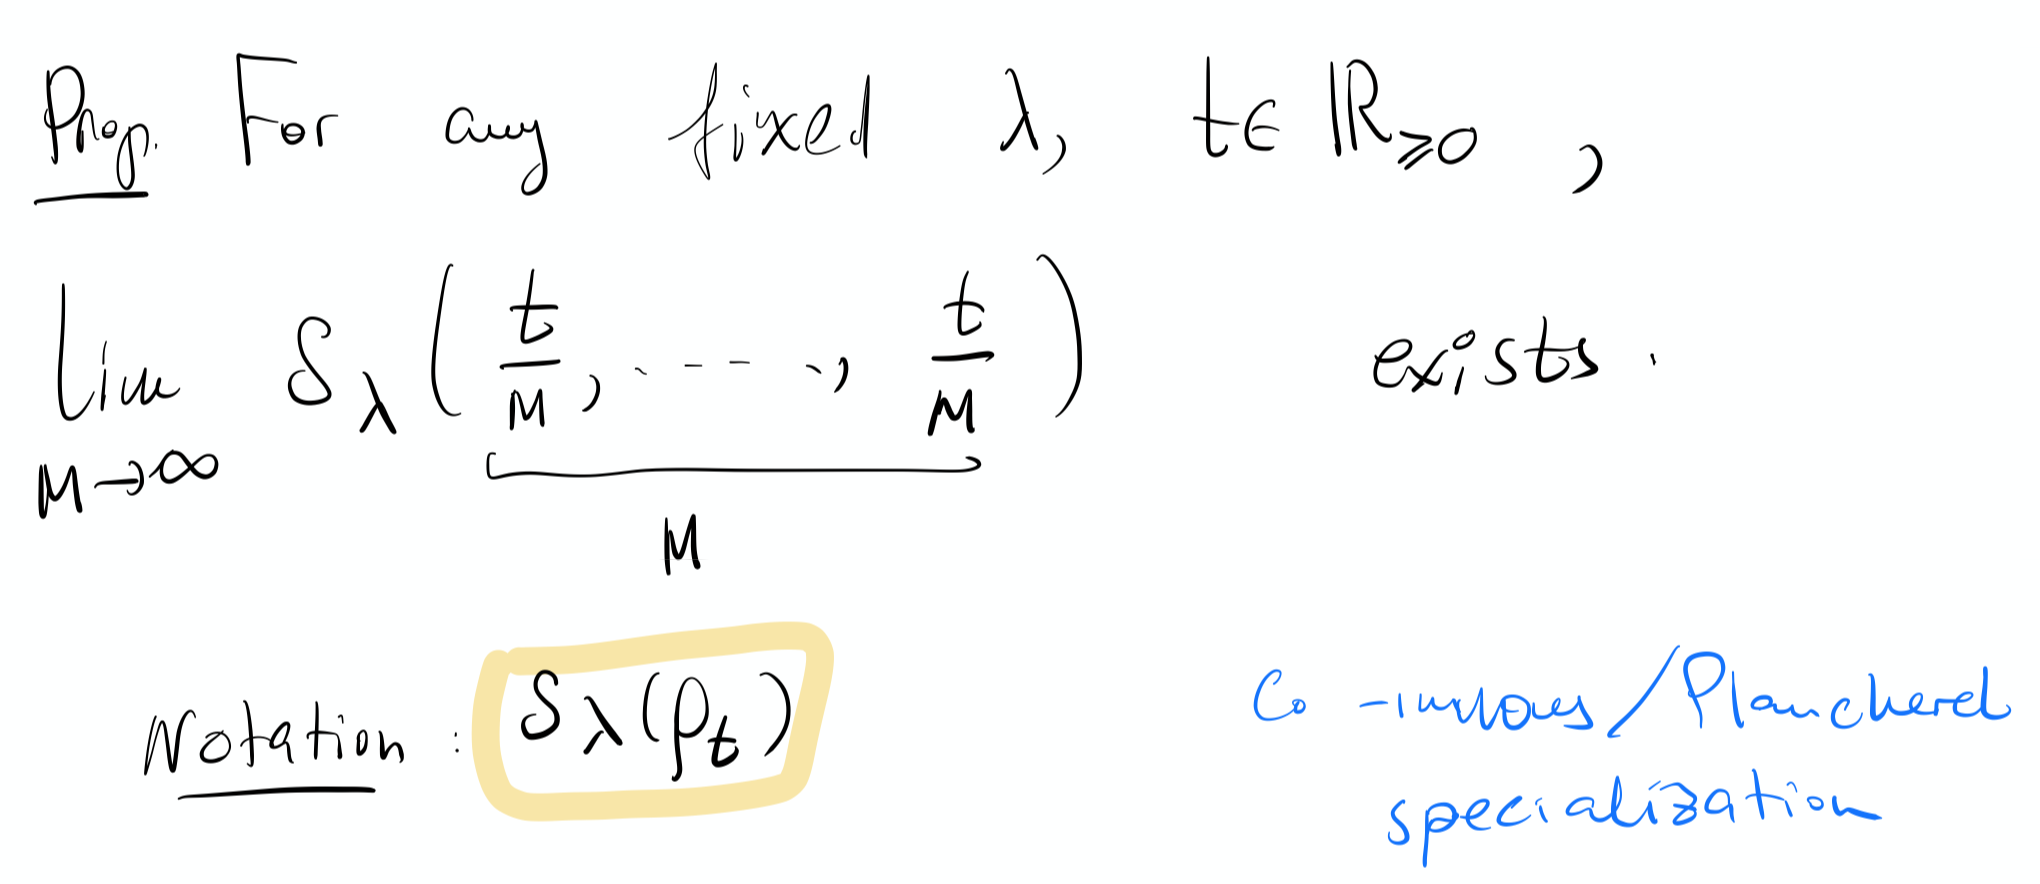 Prop. For any fixed λ, t∈ ℝ≥0 ,
lim M→∞ s_λ ( t/M , ..... , t/M ) exists .
M
Notation : s_λ(ρ_t)
Plancherel
specialization